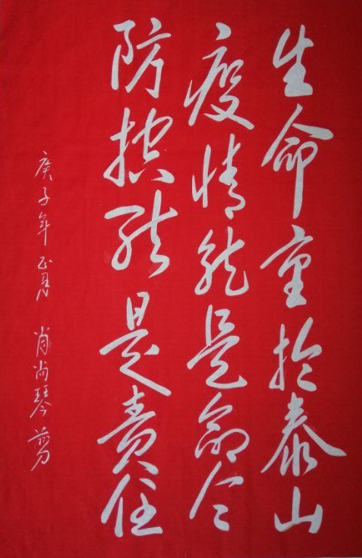 生命重于泰山
疫情就是命令
防控就是责任
庚子年正月 肖尚琴剪